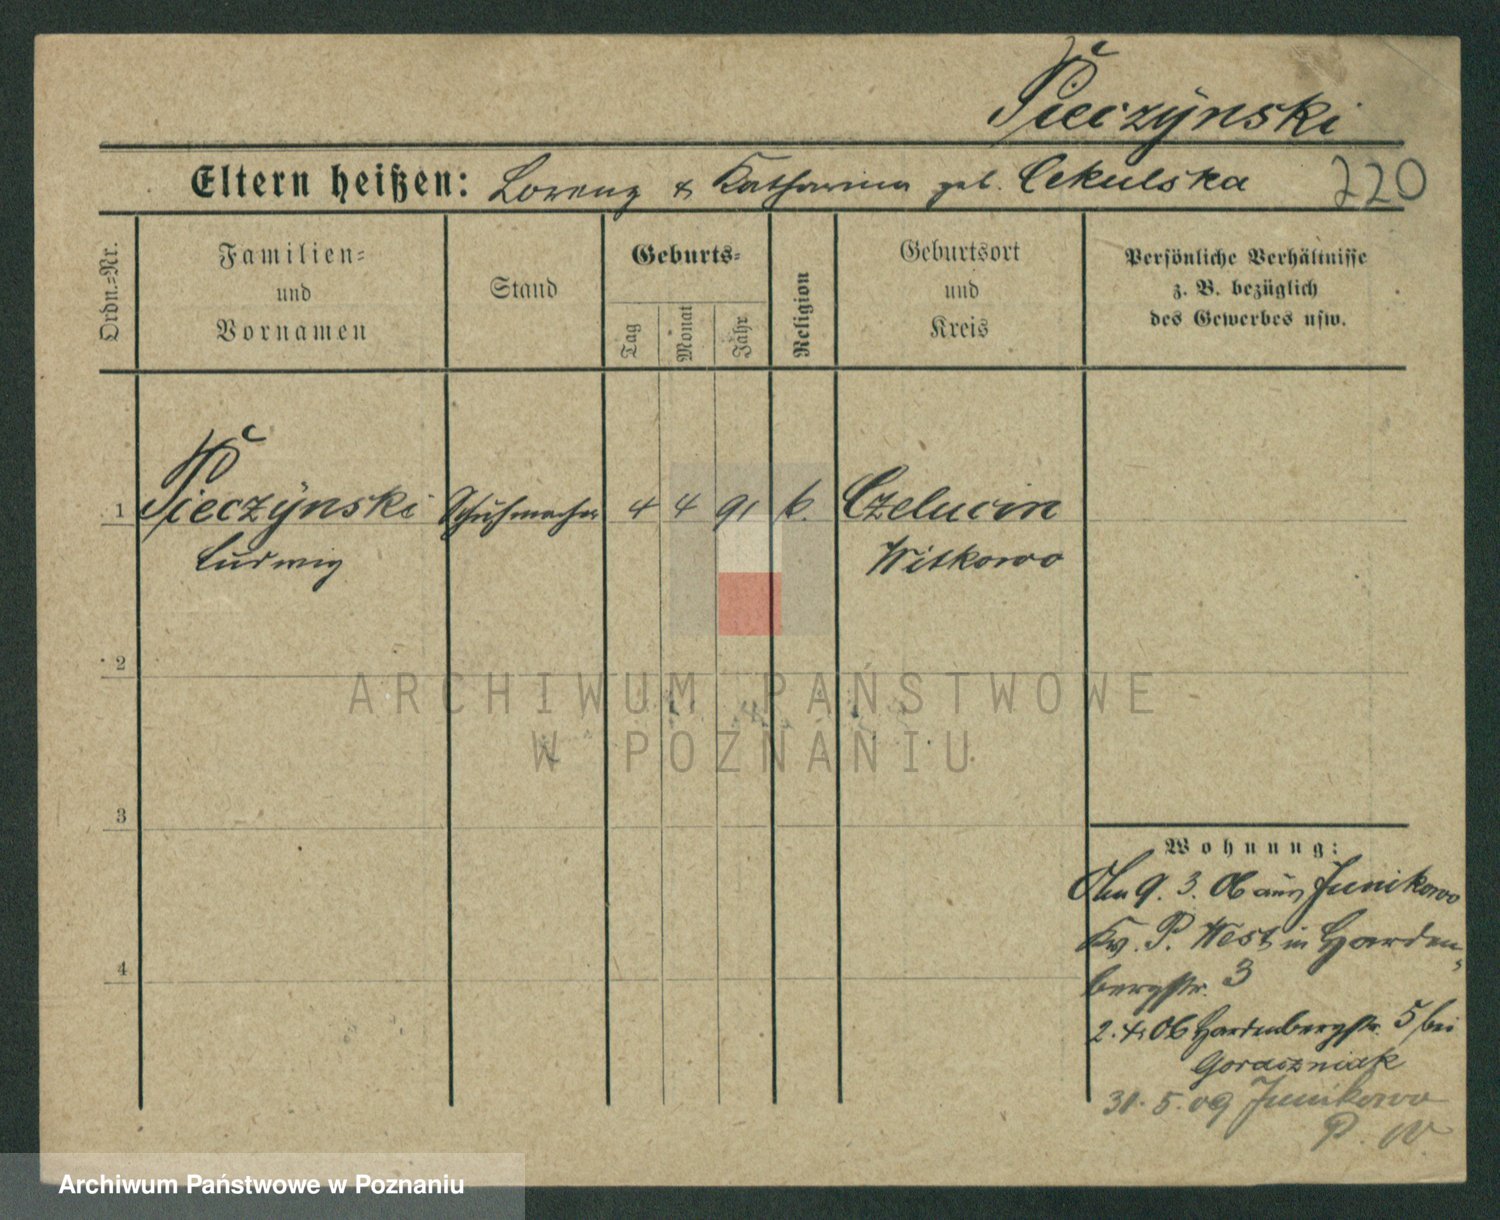 Pieczynski
Eltern heißen: Lorenz & Katharina geb. Cekulska 220
Ordn.=Nr.
Familien=
und
Vornamen
Stand
Geburts=
Tag
Monat
Jahr
Religion
Geburtsort
und
Kreis
Persönliche Verhältnisse
z. B. bezüglich
des Gewerbes usw.
1 Pieczynski Schuhmacher 4 4 91 k. Czeluscin
Ludwig Witkowo
2
ARCHIWUM PAŃSTWOWE
W POZNANIU
3
4
Wohnung:
9. 3. 06 aus Junikowo
P. West in Harden-
bergstr. 3
2.4.06 Hardenbergstr. 5 bei
Goraszniak
31. 5. 09 Junikowo
P. W.
Archiwum Państwowe w Poznaniu